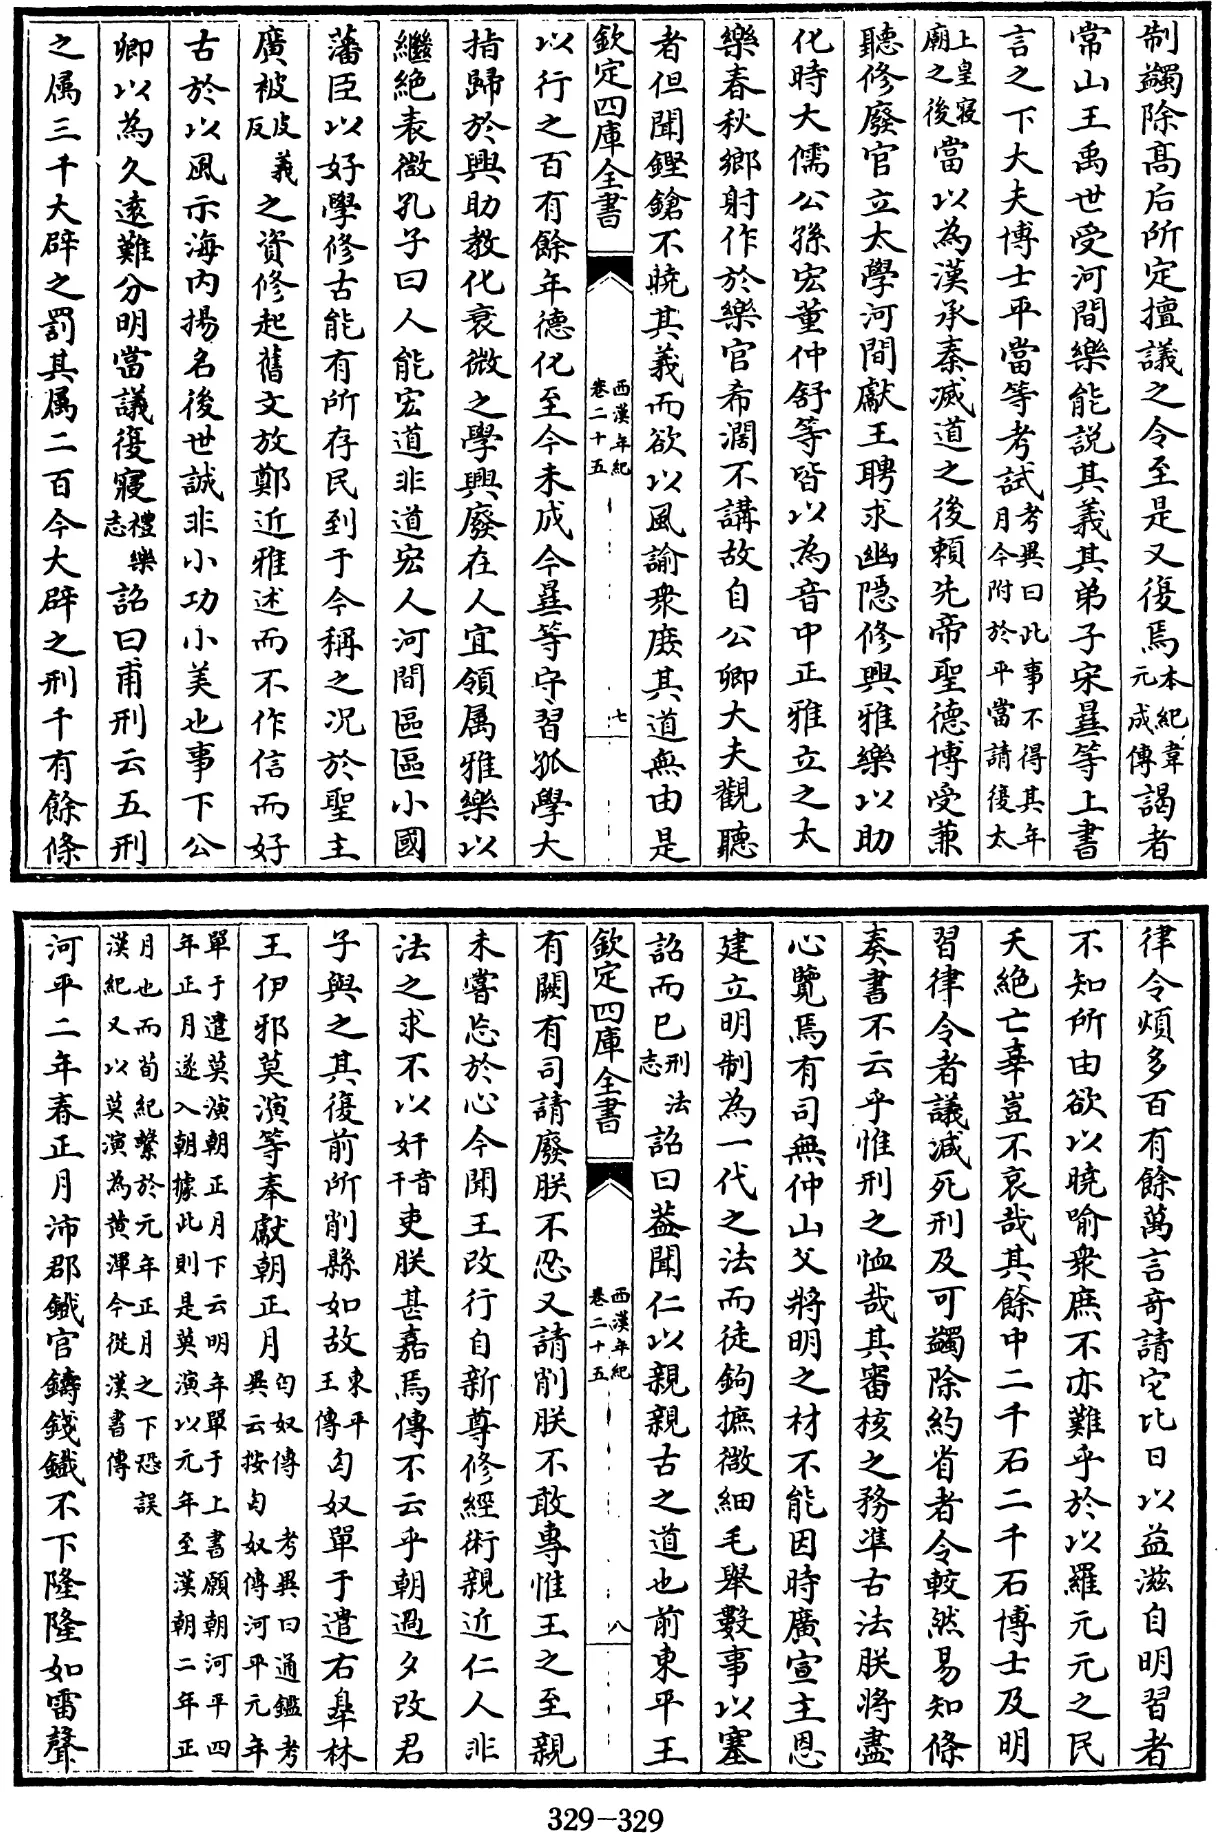 制蠲除高后所定擅議之令至是又復焉本紀韋元成傳謁者
常山王禹世受河間樂能説其義其弟子宋㬅等上書
言之下大夫博士平當等考試考異曰此事不得其年月今附於平當請復太
上皇寢廟之後當以為漢承秦滅道之後頼先帝聖德博受兼
聽修廢官立太學河間獻王聘求幽隠修興雅樂以助
化時大儒公孫宏董仲舒等皆以為音中正雅立之太
樂春秋鄉射作於樂官希濶不講故自公卿大夫觀聽
者但聞鏗鎗不曉其義而欲以風諭衆庻其道無由是
欽定四庫全書
西漢年紀
卷二十五
七
以行之百有餘年德化至今未成今㬅等守習孤學大
指歸於興助教化衰微之學興廢在人宜領属雅樂以
繼絶表微孔子曰人能宏道非道宏人河間區區小國
藩臣以好學修古能有所存民到于今稱之况於聖主
廣被皮義反之資修起舊文放鄭近雅述而不作信而好
古於以風示海内揚名後世誠非小功小美也事下公
卿以為久遠難分明當議復寢禮樂志詔曰甫刑云五刑
之属三千大辟之罰其属二百今大辟之刑千有餘條
律令煩多百有餘萬言奇請它比日以益滋自明習者
不知所由欲以曉喻衆庶不亦難乎於以羅元元之民
夭絶亡辜豈不哀哉其餘中二千石二千石博士及明
習律令者議減死刑及可蠲除約省者令較然易知條
奏書不云乎惟刑之恤哉其審核之務凖古法朕將盡
心覽焉有司無仲山父將明之材不能因時廣宣主恩
建立明制為一代之法而徒鉤摭微細毛舉數事以塞
詔而已刑法志詔曰葢聞仁以親親古之道也前東平王
欽定四庫全書
西漢年紀
卷二十五
八
有闕有司請廢朕不忍又請削朕不敢專惟王之至親
未嘗忘於心今聞王改行自新尊修經術親近仁人非
法之求不以奸音干吏朕甚嘉焉傳不云乎朝過夕改君
子與之其復前所削縣如故東平王傳匈奴單于遣右臯林
王伊邪莫演等奉獻朝正月匈奴傳考異曰通鑑考異云按匈奴傳河平元年
單于遣莫演朝正月下云明年單于上書願朝河平四年正月遂入朝據此則是莫演以元年至漢朝二年正
月也而荀紀繫於元年正月之下恐誤漢紀又以莫演為黄渾今從漢書傳
河平二年春正月沛郡鐵官鑄錢鐵不下隆隆如雷聲
329-329